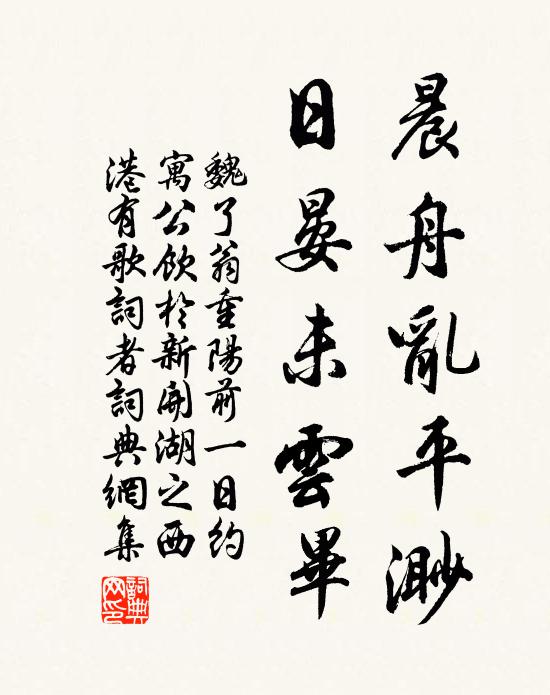 晨舟亂平渺
日晏未雲畢
魏了翁重陽前一日約
寓公飲於新開湖之西
港有歌詞者詞典網集
詞典網印